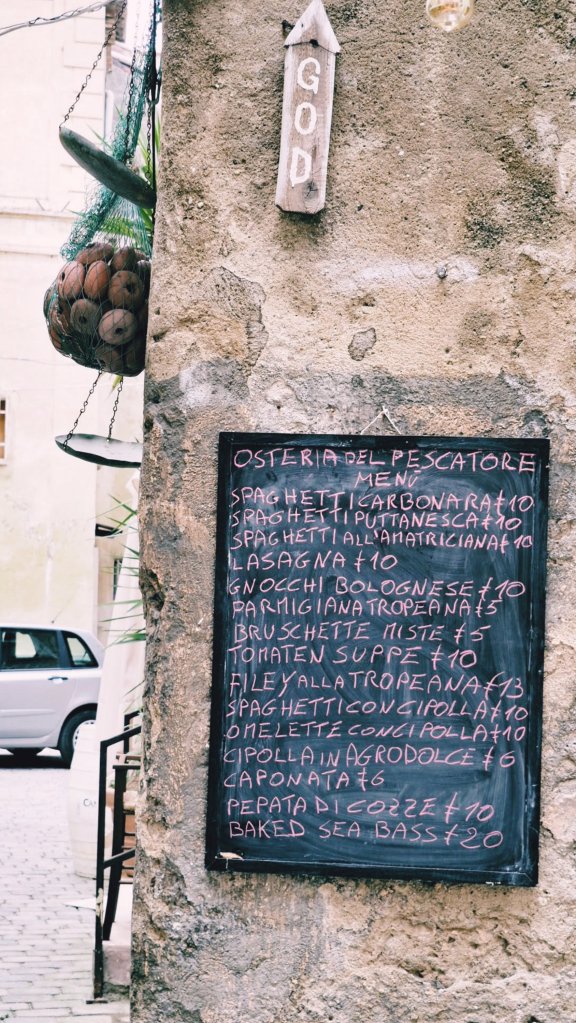 GOD
OSTERIA DEL PESCATORE
MENÚ
SPAGHETTI CARBONARA £10
SPAGHETTI PUTTANESCA £10
SPAGHETTI ALL'AMATRICIANA £10
LASAGNA £10
GNOCCHI BOLOGNESE £10
PARMIGIANA TROPEANA £5
BRUSCHETTE MISTE £5
TOMATEN SUPPE £10
FILEY ALLA TROPEANA £13
SPAGHETTI CON CIPOLLA £10
OMELETTE CON CIPOLLA £10
CIPOLLA IN AGRODOLCE £6
CAPONATA £6
PEPATA DI COZZE £10
BAKED SEA BASS £20